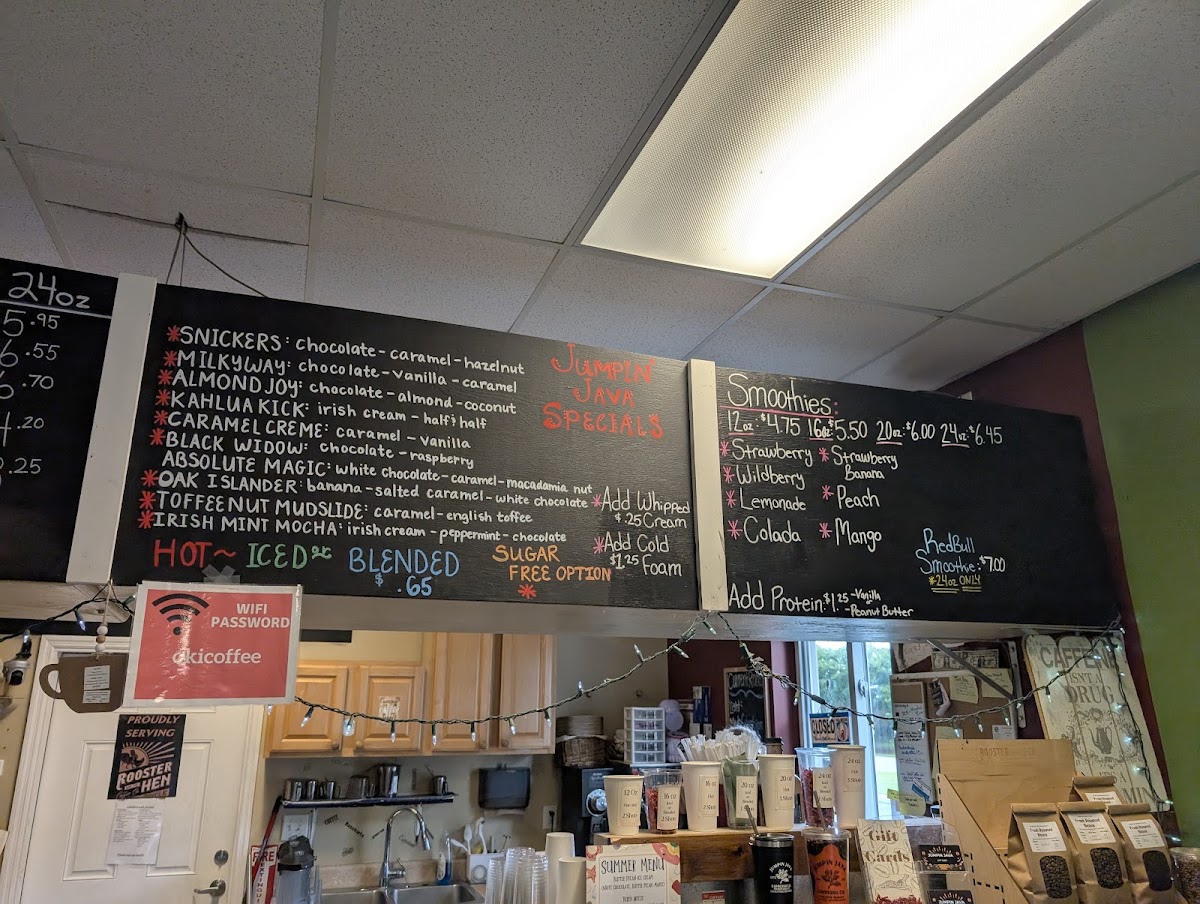 24oz
5.95
.55
.70
.20
.25
*SNICKERS: chocolate-caramel-hazelnut
*MILKYWAY: chocolate-vanilla-caramel
*ALMOND JOY: chocolate-almond-coconut
*KAHLUA KICK: irish cream-half & half
*CARAMEL CREME: caramel-vanilla
*BLACK WIDOW: chocolate-raspberry
ABSOLUTE MAGIC: white chocolate-caramel-macadamia nut
*OAK ISLANDER: banana-salted caramel-white chocolate
*TOFFEENUT MUDSLIDE: caramel-english toffee
*IRISH MINT MOCHA: irish cream-peppermint-chocolate
HOT~ ICED or BLENDED
$.65
SUGAR
FREE OPTION
*
JUMPIN'
JAVA
SPECIALS
*Add Whipped
$.25 Cream
*Add Cold
$1.25 Foam
Smoothies:
12oz:$4.75 16oz:$5.50 20oz:$6.00 24oz:$6.45
*Strawberry
*Wildberry
*Lemonade
*Colada
*Strawberry
Banana
*Peach
*Mango
RedBull
Smoothie:$7.00
*24oz ONLY
Add Protein:$1.25-Vanilla
or
-Peanut Butter
WIFI
PASSWORD
okicoffee
PROUDLY
SERVING
ROOSTER
HEN
CLOSED
CAFFEINE
ISN'T A
DRUG
12 Oz
16 oz
20 oz
20 oz
24 oz
24 oz
SUMMER MENU
Gift
Cards
JUMPIN JAVA
JUMPIN JAVA
FIRE